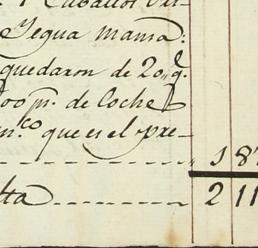 Caballos
Yegua mansa:
quedaron de 20, q.
00 p.s de Coche
m.co que es el pre-
18
lta 2 11